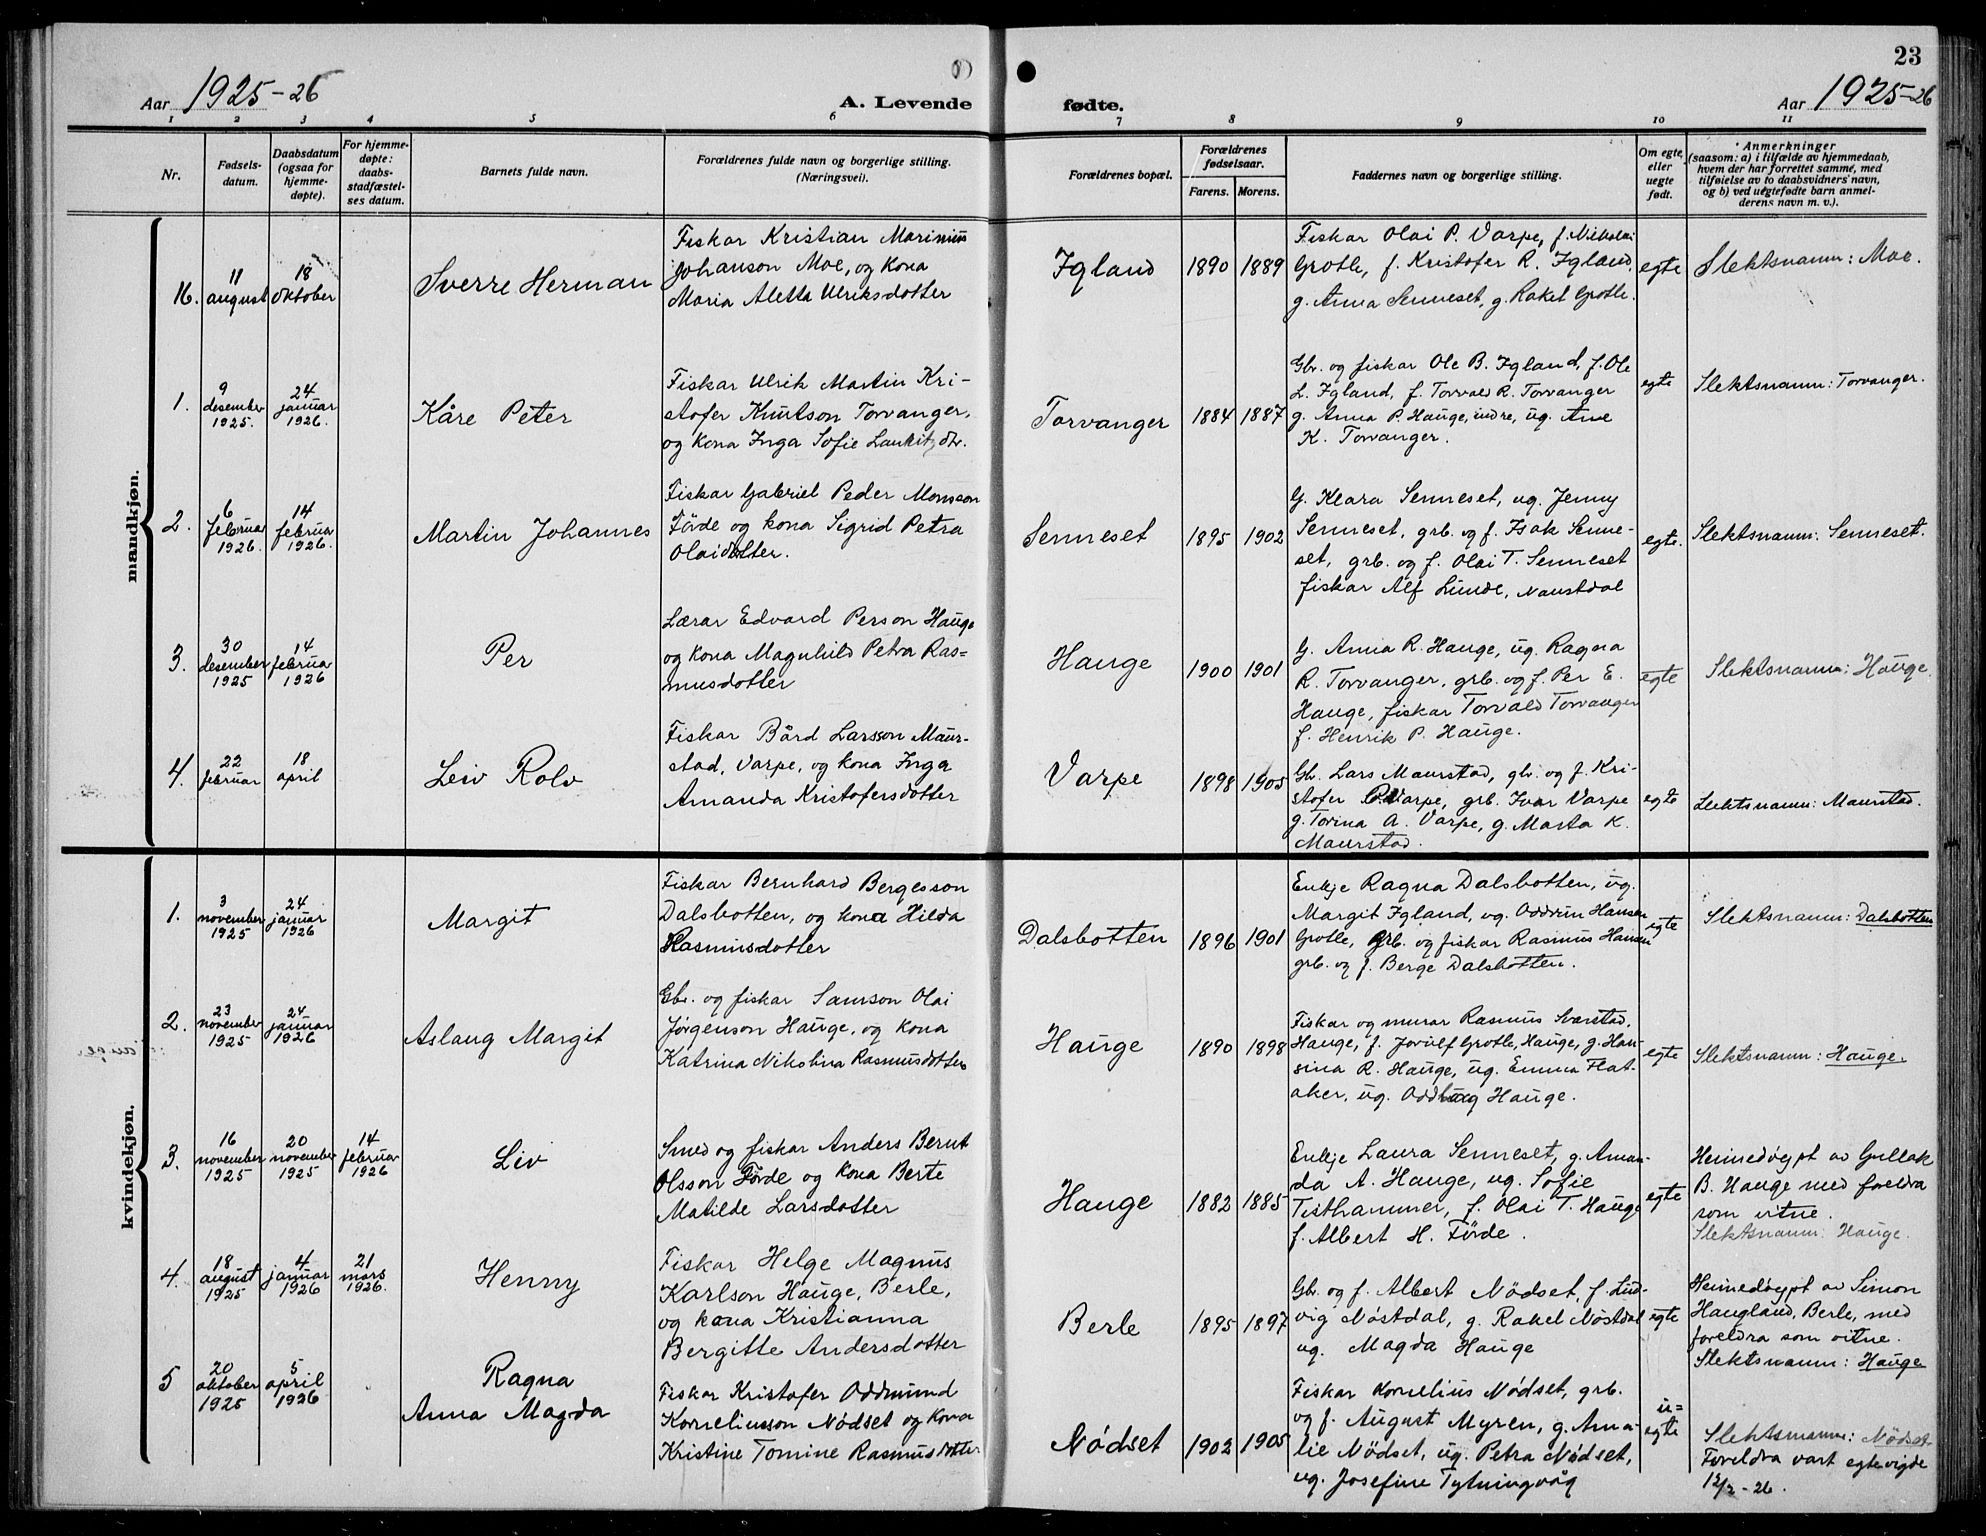 23
Aar 1925-26
A. Levende
fødte.
Aar 1925-26
1 2 3 4 5 6 7 8 9 10 11
Nr.
Fødsels-
datum.
Daabsdatum
(ogsaa for
hjemme-
døpte).
For hjemme-
døpte:
daabs-
stadfæstel-
ses datum.
Barnets fulde navn.
Forældrenes fulde navn og borgerlige stilling.
(Næringsvei).
Forældrenes bopæl.
Forældrenes
fødselsaar.
Farens. Morens.
Faddernes navn og borgerlige stilling.
Om egte
eller
uegte
født.
Anmerkninger
(saasom: a) i tilfælde av hjemmedaab,
hvem der har forrettet samme, med
tilføielse av to daabsvidners navn,
og b) ved uegtefødte barn anmel-
derens navn m. v.).
mandkjøn.
16.
11
august
18
oktober
Sverre Herman
Fiskar Kristian Marinius
Johanson Moe, og kona
Maria Aletta Ulriksdotter
Igland
1890 1889
Fiskar Olai P. Varpe, f. Nikolai
Grotle, f. Kristofer R. Igland,
g. Anna Senneset, g. Rakel Grotle.
egte
Slektsnamn: Moe.
1.
9
desember
1925.
24
januar
1926.
Kåre Peter
Fiskar Ulrik Martin Kri-
stofer Knutson Torvanger,
og kona Inga Sofie Lauritzdtr.
Torvanger
1884 1887
Gbr. og fiskar Ole B. Igland, f. Ole
L. Igland, f. Torvald R. Torvanger
g. Anna P. Hauge, indre, ug. Ane
K. Torvanger.
egte
Slektsnamn: Torvanger.
2.
6
februar
1926.
14
februar
1926.
Martin Johannes
Fiskar Gabriel Peder Monsson
Förde og kona Sigrid Petra
Olaidotter.
Senneset
1895 1902
G. Klara Senneset, ug. Jenny
Senneset, grb. og f. Isak Senne-
set, grb. og f. Olai T. Senneset
fiskar Alf Lunde, Naustdal
egte.
Slektsnamn: Senneset.
3.
30
desember
1925
14
februar
1926
Per
Lærar Edvard Person Hauge
og kona Magnhild Petra Ras=
musdotter
Hauge
1900 1901
G. Anna R. Hauge, ug. Ragna
R. Torvanger, grb. og f. Per E.
Hauge, fiskar Torvald Torvanger
f. Henrik P. Hauge.
egte
Slektsnamn: Hauge
4.
22
februar
18
april
Leiv Rolv
Fiskar Bård Larsson Maur-
stad, Varpe, og kona Inga
Amanda Kristofersdotter
Varpe
1898 1905
Gb. Lars Maurstad, gbr. og f. Kri-
stofer Varpe, grb. Ivar Varpe
g. Torina A. Varpe, g. Marta K.
Maurstad.
egte
Slektsnamn: Maurstad.
kvindekjøn.
1.
3
november
1925
24
januar
1926
Margit
Fiskar Bernhard Bergesson
Dalsbotten, og kona Hilda
Rasmusdotter
Dalsbotten
1896 1901
Enkje Ragna Dalsbotten, ug.
Margit Igland, ug. Oddrun Hansen
Grotle, grb. og fiskar Rasmus Hansen
grb. og f. Berge Dalsbotten.
egte
Slektsnamn: Dalsbotten
2.
23
november
1925
24
januar
1926
Aslaug Margit
Gbr. og fiskar Samson Olai
Jørgenson Hauge, og kona
Katrina Nikolina Rasmusdotter
Hauge
1890 1898
Fiskar og murar Rasmus Svarstad,
Hauge, f. Jovulf Grotle, Hauge, g. Han-
sina R. Hauge, ug. Emma Flat-
aker, ug. Oddbug Hauge.
egte
Slektsnamn: Hauge.
3.
16
november
1925
20
november
1925
14
februar
1926
Liv
Smed og fiskar Anders Bernt
Olsson Förde og kona Berte
Matilde Larsdotter
Hauge
1882 1885
Enkje Laura Senneset, g. Aman-
da A. Hauge, ug. Sofie
Tisthammer, f. Olai T. Hauge
f. Albert H. Förde.
egte
Heimedøypt av Gullak
B. Hauge med foreldra
som vitne.
Slektsnamn: Hauge.
4.
18
august
1925
4
januar
1926
21
mars
1926.
Henny
Fiskar Helge Magnus
Karlson Hauge, Berle,
og kona Kristianna
Bergitte Andersdotter
Berle
1895 1897
Gbr. og f. Albert Nödset, f. Lud-
vig Nøstdal, g. Rakel Nøstdal
ug. Magda Hauge
egte
Heimedøypt av Simon
Haugland, Berle, med
foreldra som vitne.
Slektsnamn: Hauge
5
20
oktober
1925
5
april
1926
Ragna
Anna Magda
Fiskar Kristofer Oddmund
Korneliusson Nödset og kona
Kristine Tomine Rasmusdotter
Nödset
1902 1905
Fiskar Kornelius Nödset, grb.
og f. August Myren, g. Ama-
lie Nödset, ug. Petra Nödset,
ug. Josefine Tytningvåg
u=
egte
Slektsnamn: Nødset
Foreldra vart egtevigde
12/2-26.